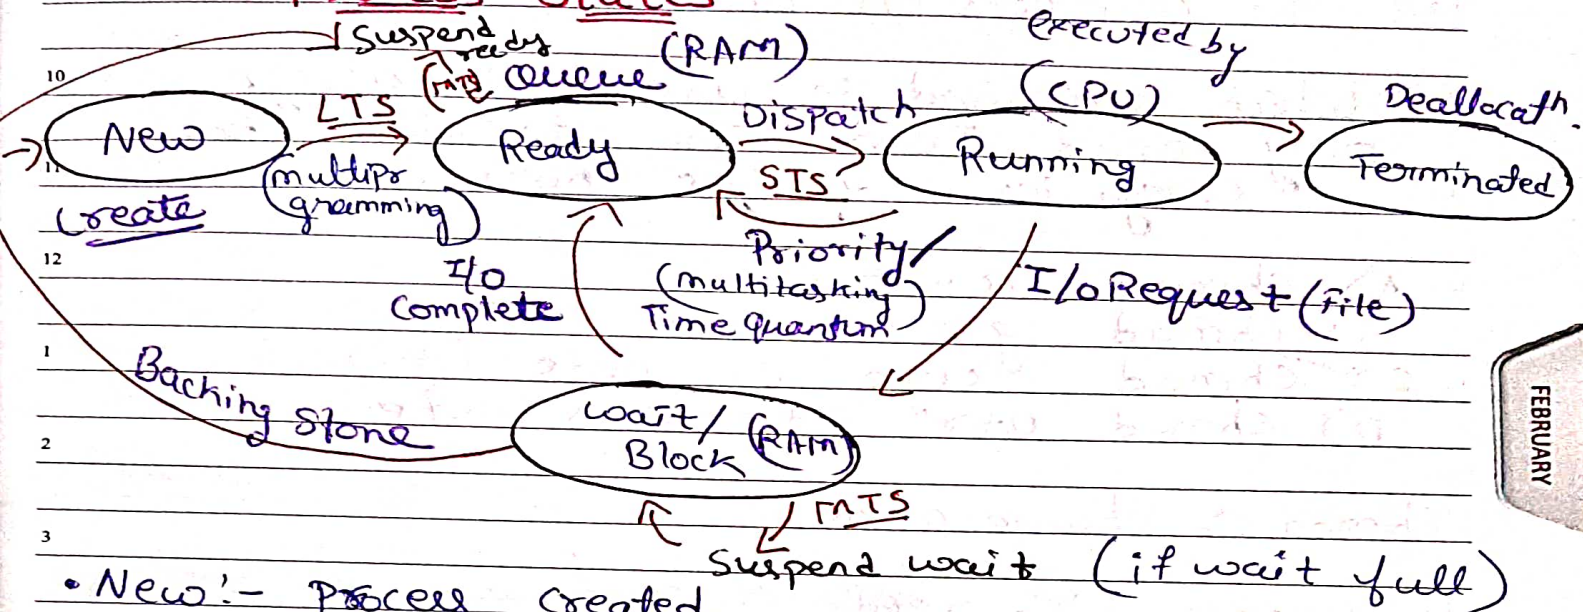 Process States
Suspend
ready
(MTS)
Queue
(RAM)
executed by
(CPU)
Deallocatn.
10
New
LTS
Ready
Dispatch
Running
Terminated
11
(multipr
gramming)
STS
Create
Priority/
(multitasking)
Time quantum
12
I/O
Complete
I/O Request (File)
1
Backing Stone
wait/
Block
(RAM)
2
MTS
3
Suspend wait (if wait full)
• New:- Process created
FEBRUARY